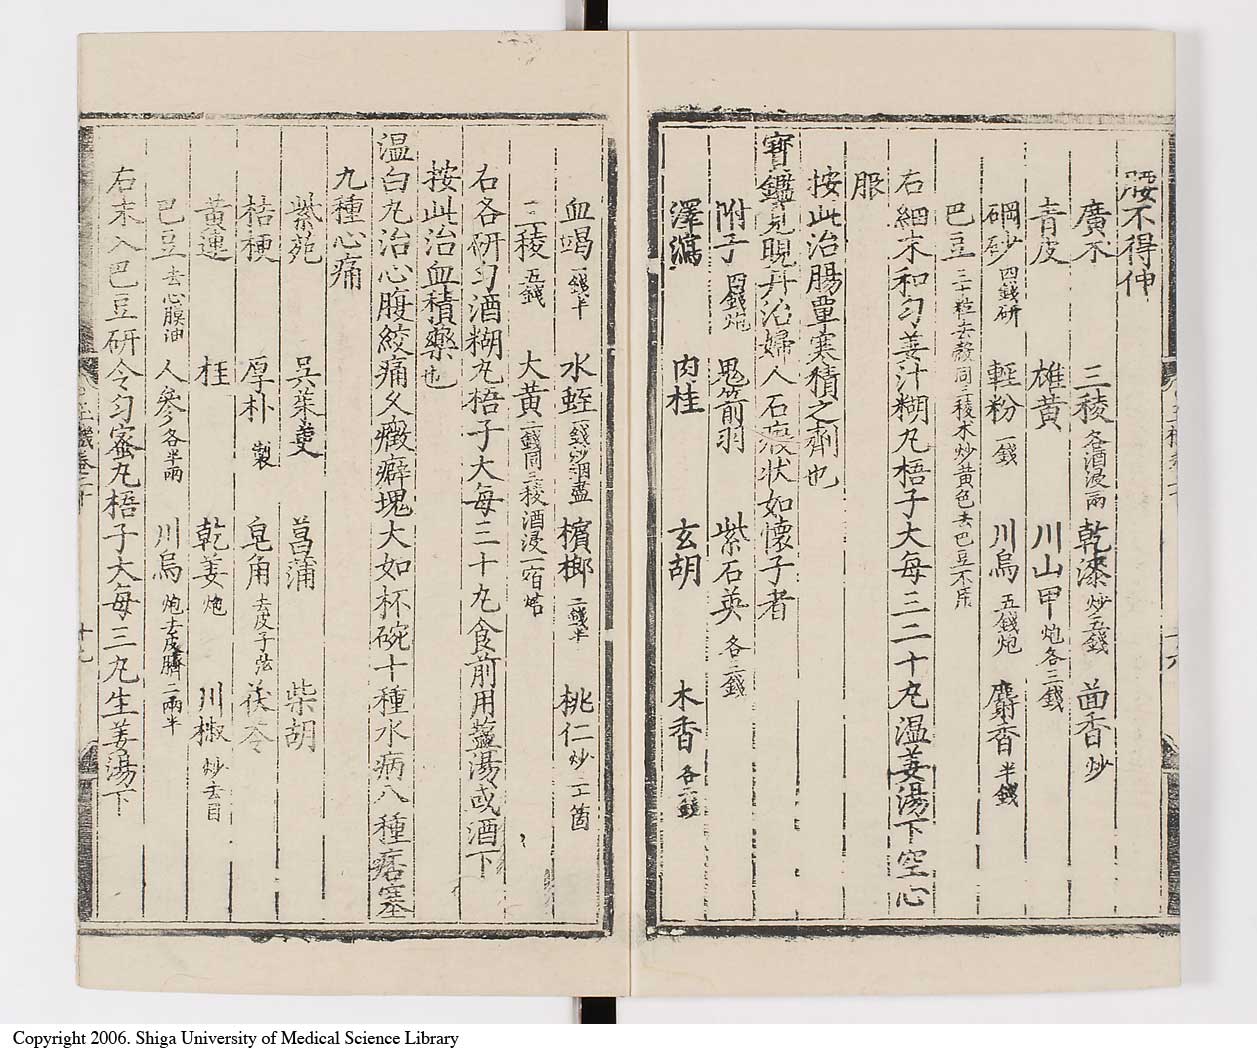 腰不得伸
廣朮 三稜各酒浸兩 乾漆炒五錢 茴香炒
青皮 雄黃 川山甲炮各三錢
硇砂四錢研 輕粉一錢 川烏五錢炮 麝香半錢
巴豆三十粒去殼同三稜朮炒黃色去巴豆不用
右細末和勻姜汁糊丸梧子大每三二十丸温姜湯下空心
服
按此治腸覃寒積之劑也
寶鑑見晛丹治婦人石瘕状如懷子者
附子四錢炮 鬼箭羽 紫石英各三錢
澤瀉 肉桂 玄胡 木香各二錢
血竭一錢半 水蛭一錢炒烟盡 檳榔二錢半 桃仁炒 箇
三稜五錢 大黃二錢同三稜酒浸一宿焙
右各研勻酒糊丸梧子大每三十丸食前用薑湯或酒下
按此治血積藥也
温白丸治心腹絞痛久癥癖塊大如杯碗十種水病八種痞塞
九種心痛
紫菀 吳茱萸 菖蒲 柴胡
桔梗 厚朴製 皂角去皮子弦 茯苓
黃連 桂 乾姜炮 川椒炒去目
巴豆去心膜油 人參各半兩 川烏炮去皮臍二兩半
右末入巴豆研令勻蜜丸梧子大每三丸生姜湯下
Copyright 2006. Shiga University of Medical Science Library